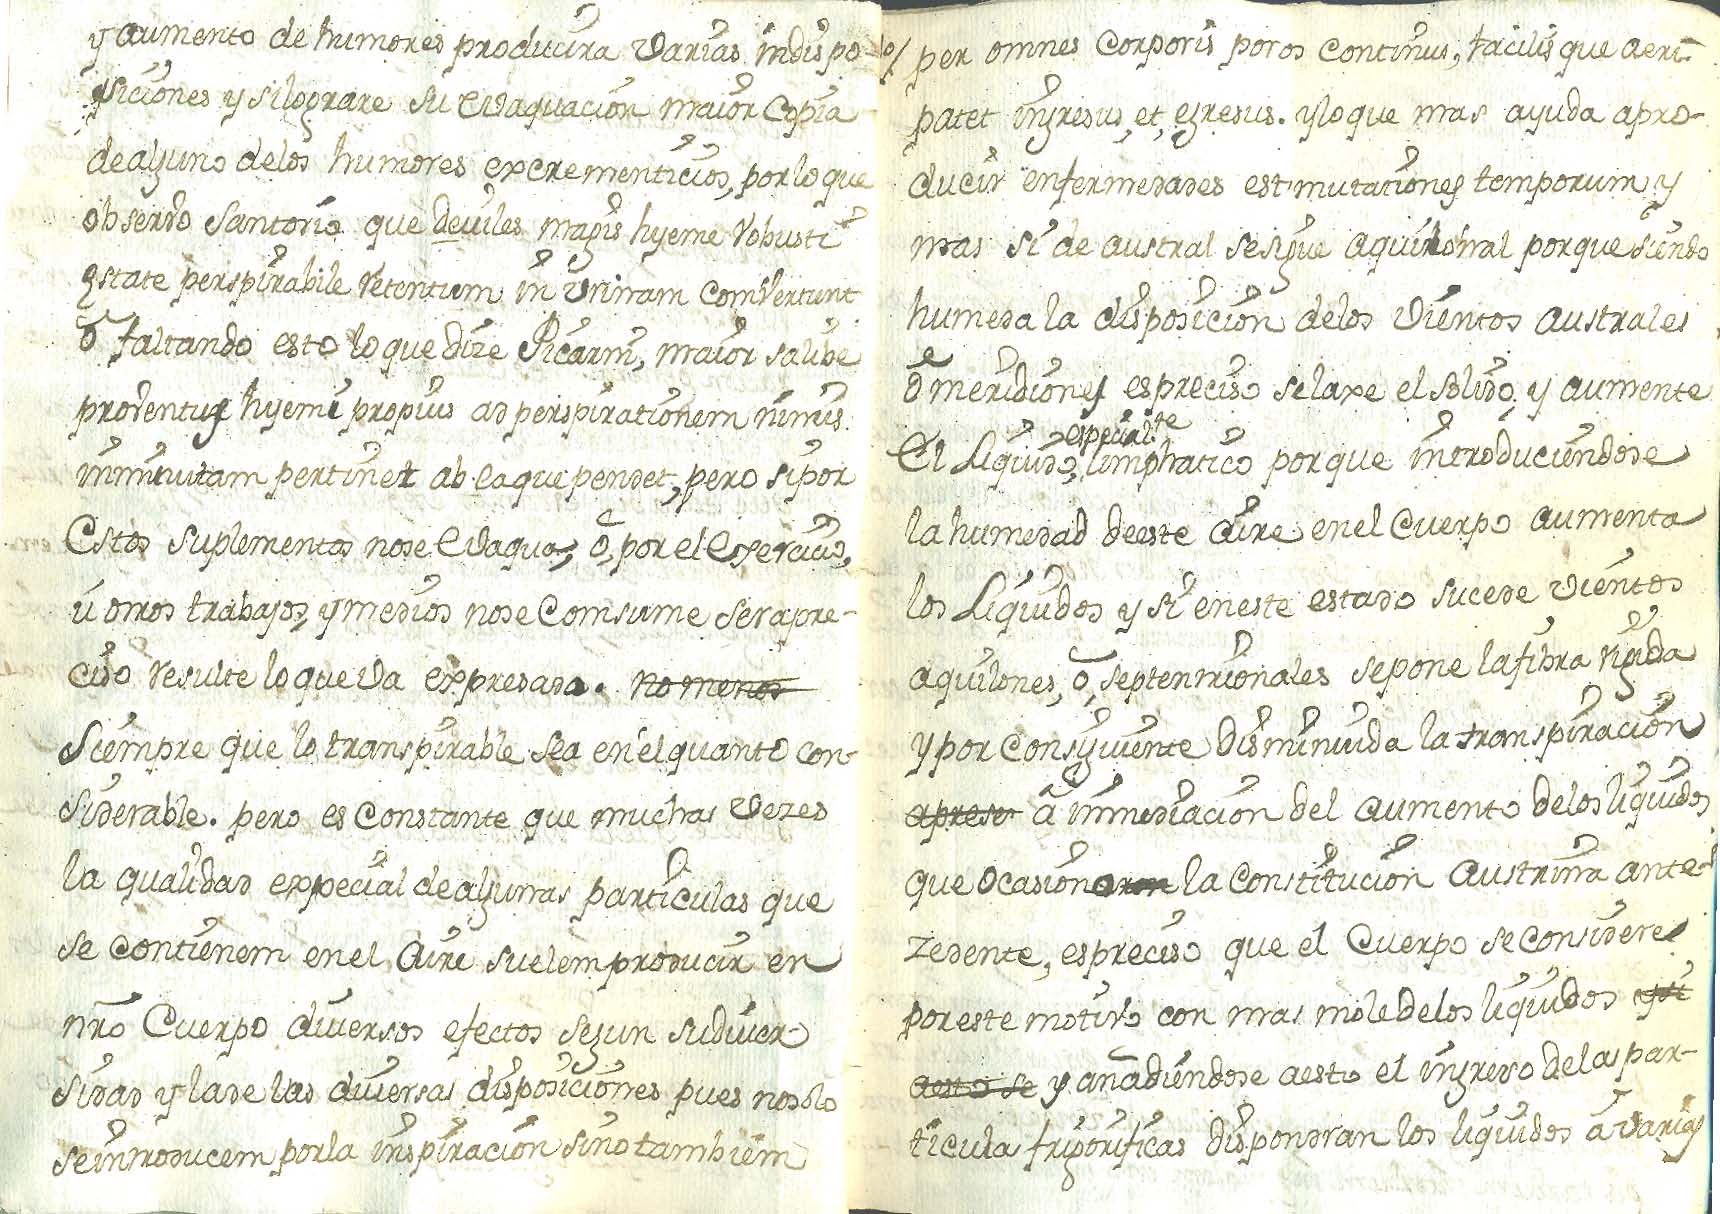 y aumento de humores producira varias indispo
siciones y si lograre su evaquacion maior copia
de alguno delos humores excrementicios, por lo que
observo Santorio que deviles magis hyeme robusti
estate perspirabile retentum in urinam comvertunt
ō faltando esto lo que dize Picarni, maior salibe
proventus hyemi propius ad perspirationem nimis
imminutam pertinet ab eaque pendet, pero si por
Estos suplementos nose Evaqua, ó, por el Exercicio,
ú otros trabajos, y medios nose Comsume sera pre-
ciso resulte lo que va expresado. no menos
Siempre que lo transpirable sea en el quanto con-
siderable. pero es Constante que muchas vezes
la qualidad expecial de algunas particulas que
se contienem en el Aire suelem producir en
nrō Cuerpo diversos efectos segun su diver-
sidad y la de las diversas disposiciones pues no solo
se introducem por la inspiracion sino tambiem
per omnes Corporis poros continus, facilisque aeri
patet ingresus, et, egresus. y lo que mas ayuda apro-
ducir enfermedades est mutationes temporum y
mas si de austral se sigue aquilonal porque siendo
humeda la disposicion delos Vientos australes
ō meridiones es preciso se laxe el solido, y aumente
especialte
El Liquido, limphatico porque introduciendose
la humedad de este Aire en el Cuerpo aumenta
los Liquidos y si en este estado sucede vientos
aquilones, ó, septentrionales se pone la fibra rigida
y por consiguiente disminuida la transpiracion
apreser á immediacion del aumento delos liquidos
que ocasionoron la constitucion Austrina ante-
zedente, es preciso que el Cuerpo se considere
por este motivo con mas mole delos liquidos y si
aesto se y añadiendose aesto el ingreso de las par-
ticula frigorificas dispondran los liquidos á varias